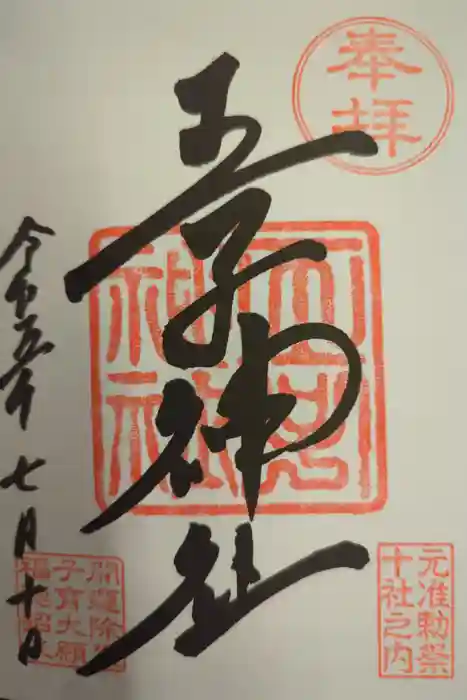 奉拝
王子神社
令和五年 七月十日
元准勅祭
十社之内
開運除
子育大願